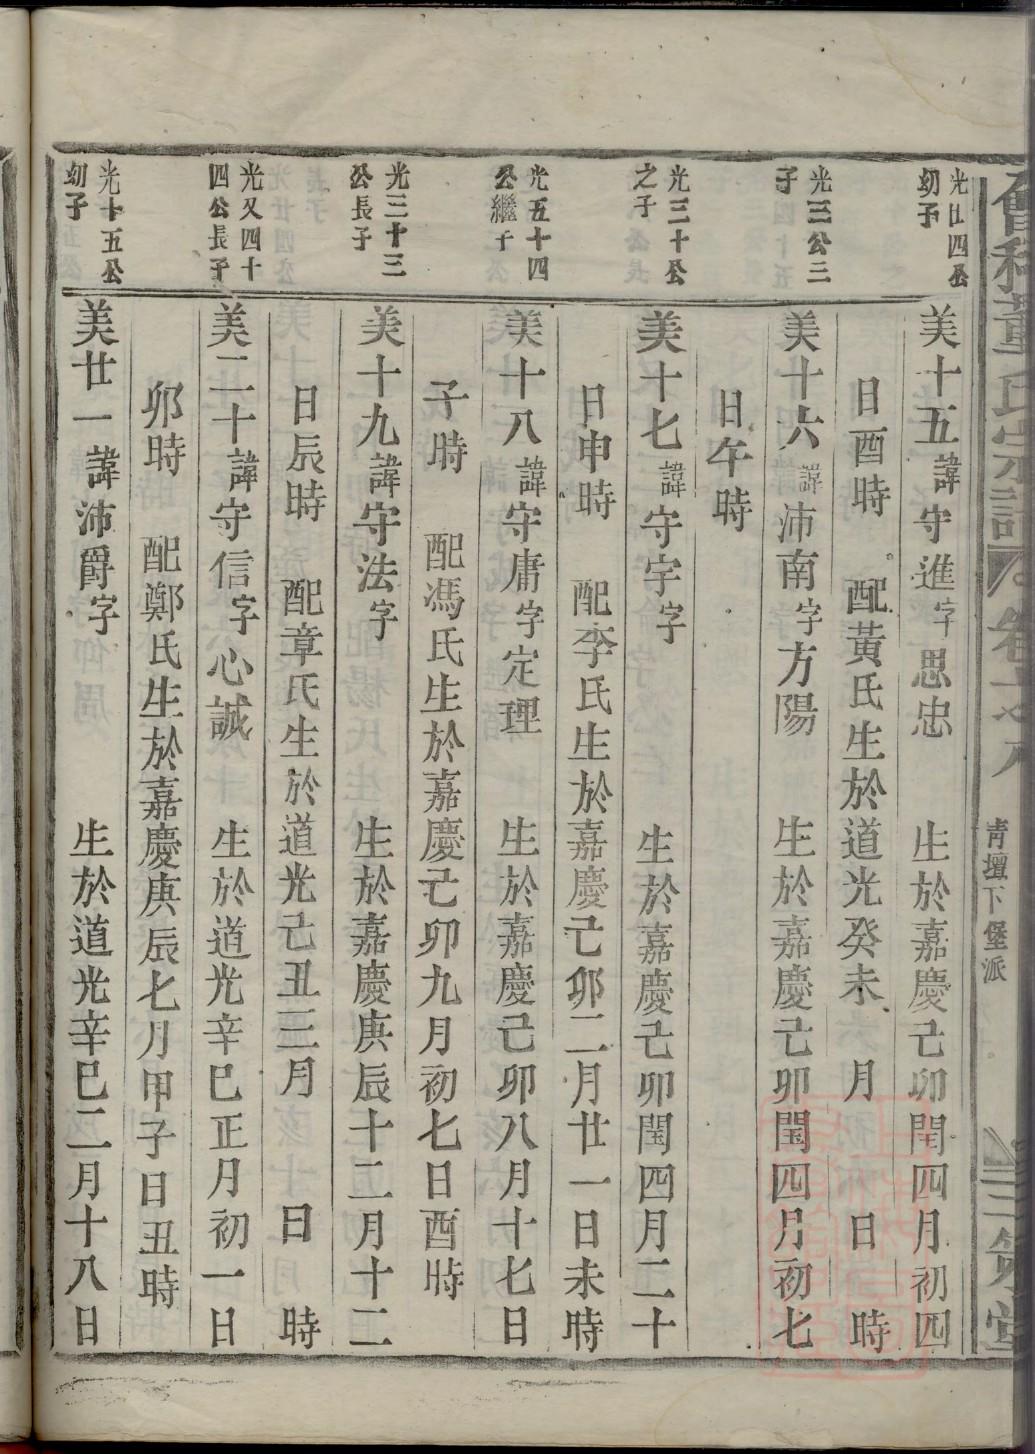 會稽董氏宗譜
青壇下堡派
三策堂
光廿四公
幼子
美十五諱守進字思忠 生於嘉慶己卯閏四月初四
日酉時 配黃氏生於道光癸未 月 日 時
光三公三
子
美十六諱沛南字方陽 生於嘉慶己卯閏四月初七
日午時
光三十公
之子
美十七諱守字字 生於嘉慶己卯閏四月二十
日申時 配李氏生於嘉慶己卯二月廿一日未時
光五十四
公繼子
美十八諱守庸字定理 生於嘉慶己卯八月十七日
子時 配馮氏生於嘉慶己卯九月初七日酉時
光三十三
公長子
美十九諱守法字 生於嘉慶庚辰十二月十二
日辰時 配章氏生於道光己丑三月 日 時
光又四十
四公長子
美二十諱守信字心誠 生於道光辛巳正月初一日
卯時 配鄭氏生於嘉慶庚辰七月甲子日丑時
光十五公
幼子
美廿一諱沛爵字 生於道光辛巳二月十八日